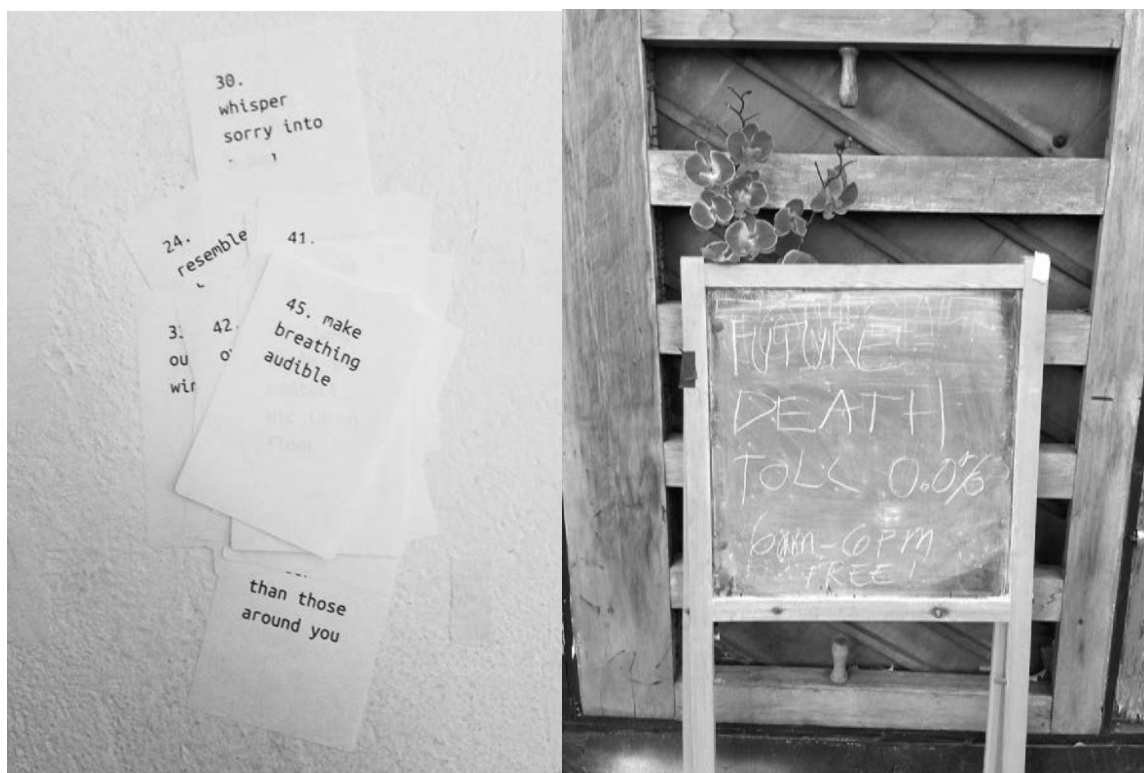 30.
whisper
sorry into
24.
resemble
41.
45. make
breathing
audible
42.
ou
wir
than those
around you
FUTURE
DEATH
TOLL 0.0%
6am-6PM
FREE!